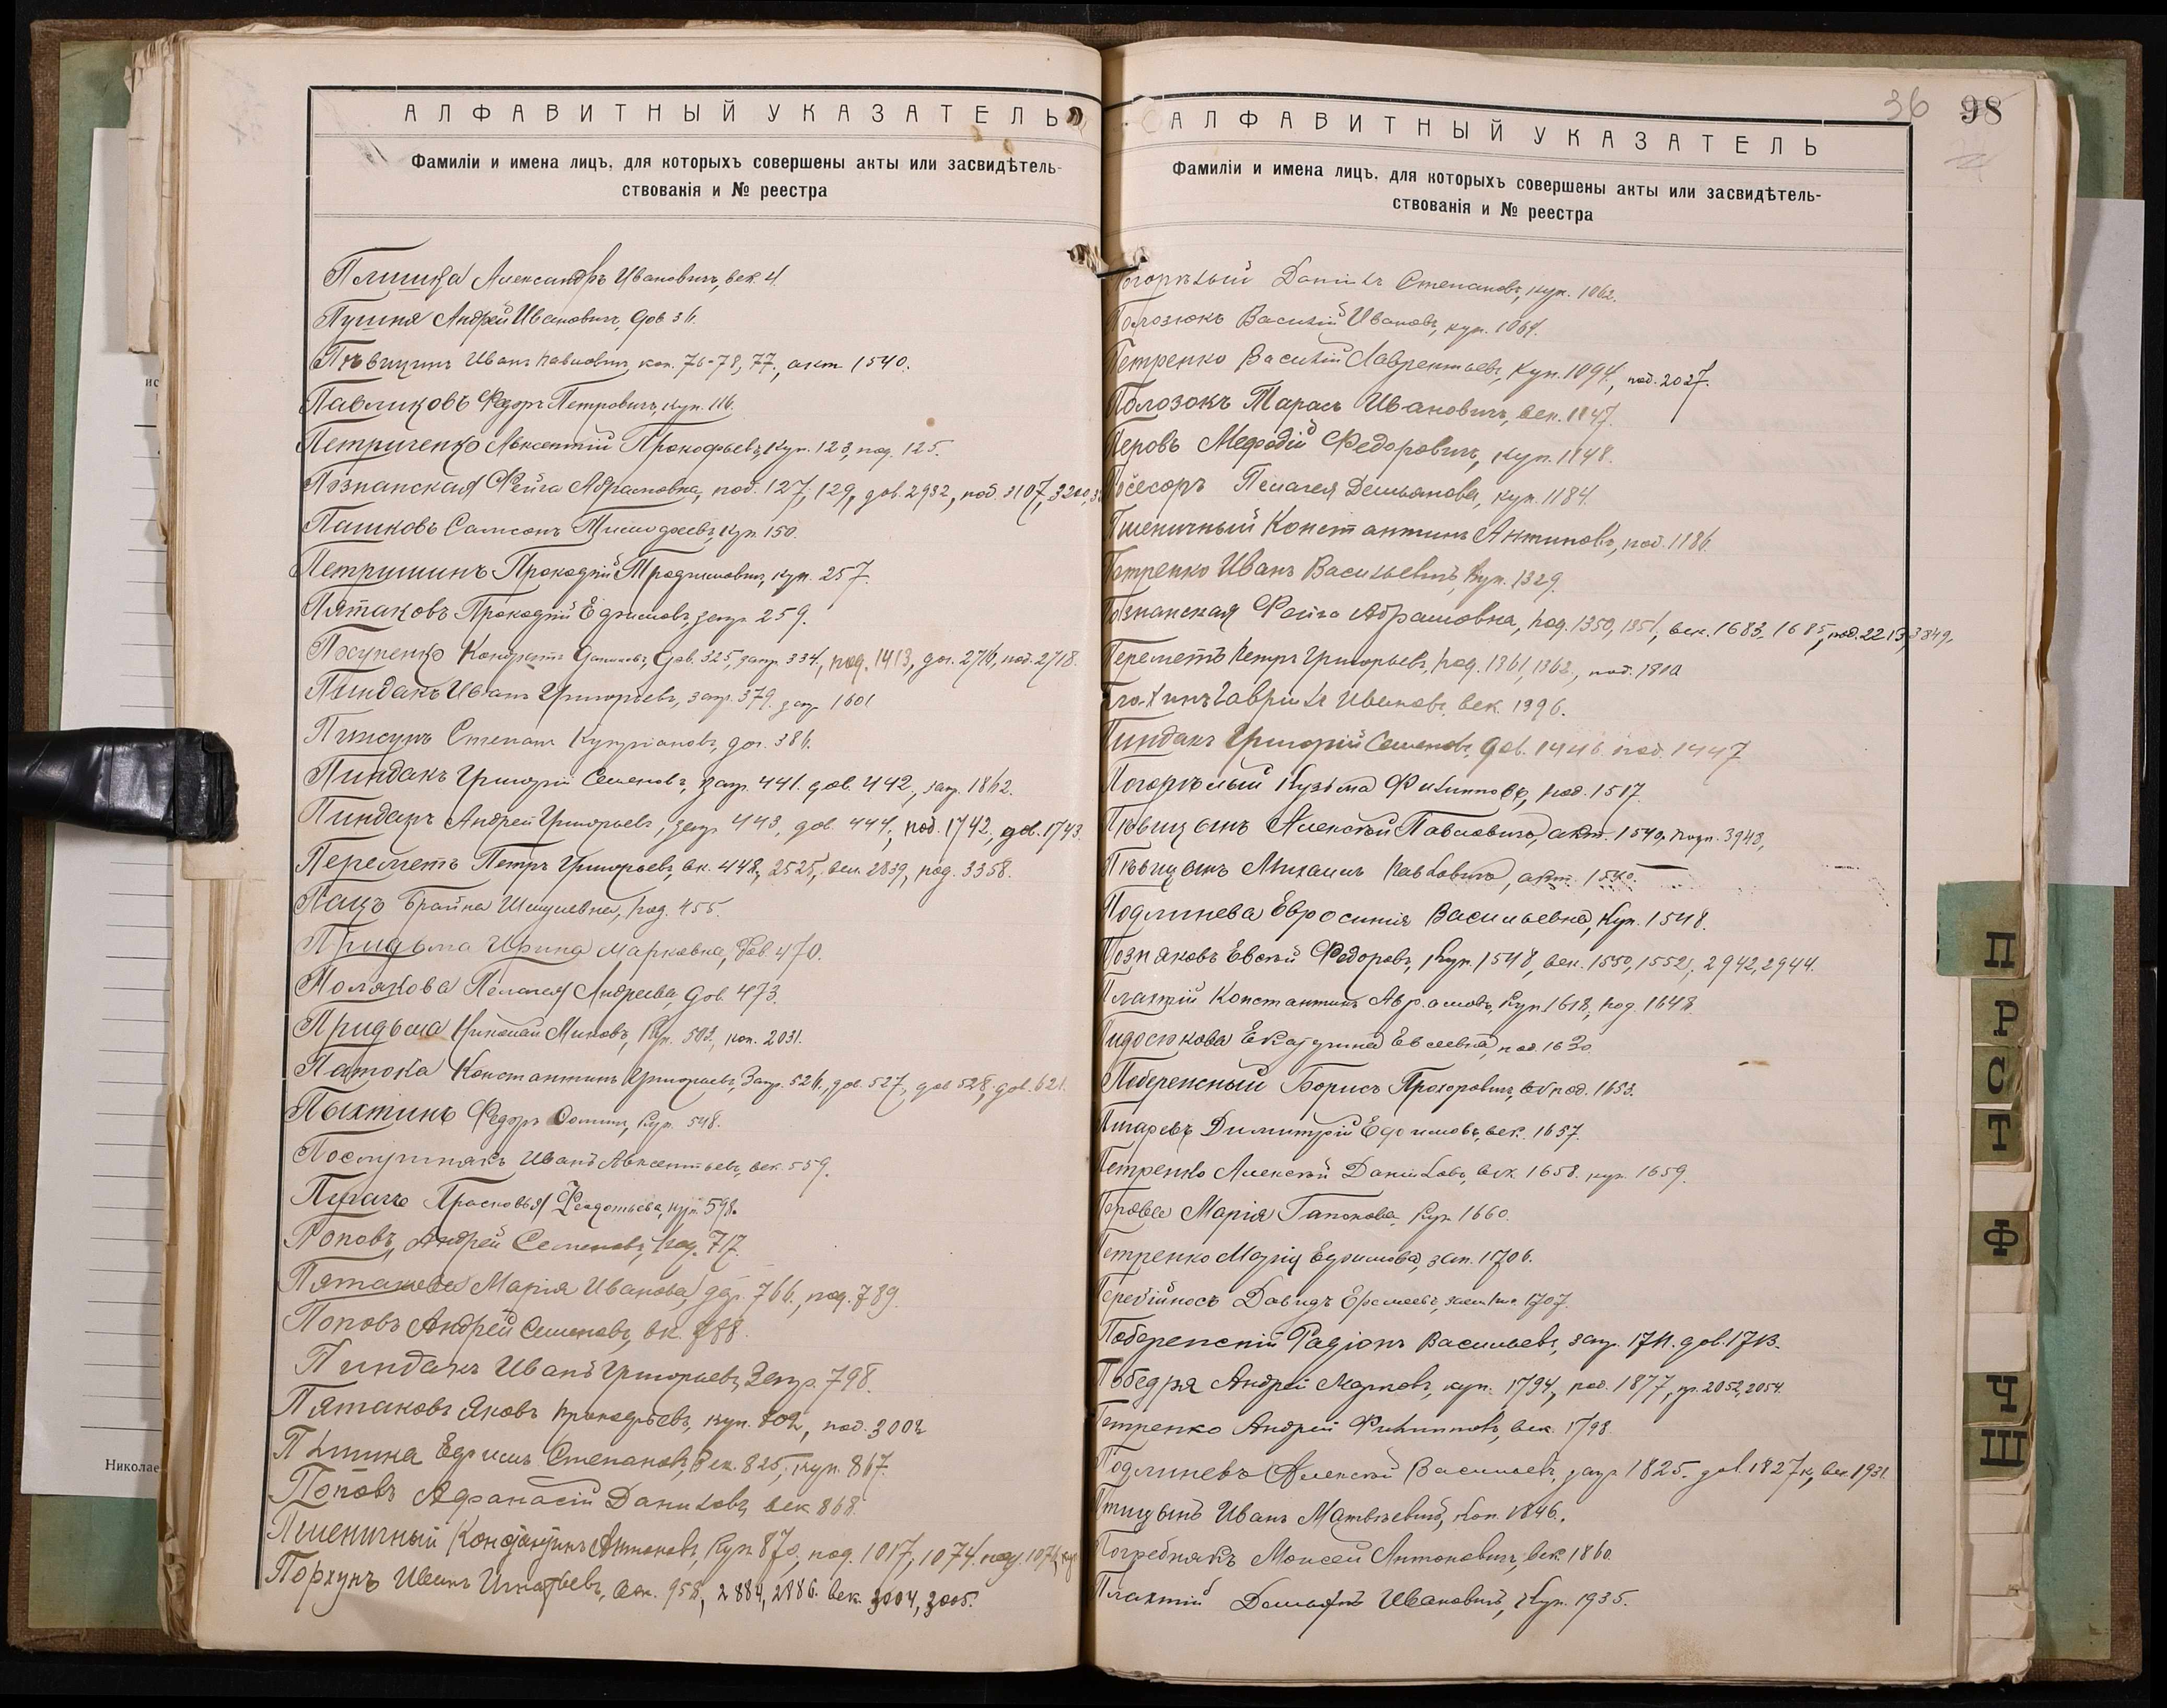 АЛФАВИТНЫЙ УКАЗАТЕЛЬ
Фамиліи и имена лицъ, для которыхъ совершены акты или засвидѣтель-
ствованія и № реестра
Александръ Ивановичъ, век. 4.
Андрей Ивановичъ, дов. 36.
Пѣвицинъ Иванъ Павловичъ, коп. 76-78, 77, акт. 1540.
Павликовъ Федоръ Петровичъ, куп. 116.
Петриченко Авксентій Прокофьевъ, куп. 123, под. 125.
Познанская Фейга Абрамовна, под. 127, 129, дов. 2932, под. 3107, 3200,
Пашковъ Самсонъ куп. 150.
Петришинъ Прокофій куп. 257.
Пятаковъ Прокофій Ефимовъ, запр. 259.
Посупенко Кондратъ дов. 325, запр. 334, под. 1413, дог. 2716, под. 2718.
Пындакъ Иванъ Григорьевъ, запр. 379. запр. 1601
Степанъ Купріановъ, дог. 386.
Пиндакъ Григорій Семеновъ, запр. 441. дов. 442, запр. 1862.
Пиндакъ Андрей Григорьевъ, запр. 443, дов. 444, под. 1742, дов. 1743.
Переметъ Петръ Григорьевъ, век. 448, 2525, век. 2839, под. 3358.
Пацъ Брайна под. 455.
Придьма Ирина Марковна, дов. 470.
Полякова Пелагея Андреева дов. 473.
Придьма Николай куп. 503, коп. 2031.
Патока Константинъ Григорьевъ, запр. 526, дов. 527, дов. 528, дов. 621.
Пыхтинъ Федоръ Фоминъ, куп. 548.
Послушнякъ Иванъ Авксентьевъ, век. 559.
Пугачъ Прасковья Феодотьева, куп. 598.
Поповъ, Андрей Семеновъ, под. 717.
Пятакова Марія Иванова, 766, под. 789.
Поповъ Андрей Семеновъ, вк. 788.
Пиндакъ Иванъ Григорьевъ, запр. 798.
Пятаковъ Яковъ Прокофьевъ, куп. 802, под. 3002
Ефимъ Степановъ, век. 825, куп. 867.
Поповъ Афанасій Даниловъ, век. 868.
Пшеничный Константинъ Антоновъ, куп. 870, под. 1017, 1074.
Порхунъ Иванъ Игнатьевъ, век. 958, 2884, 2886. век. 3004, 3005.
36 98
АЛФАВИТНЫЙ УКАЗАТЕЛЬ
Фамиліи и имена лицъ, для которыхъ совершены акты или засвидѣтель-
ствованія и № реестра
Погорѣлый Даніилъ Степановъ, куп. 1062.
Полозюкъ Василій Ивановъ, куп. 1064.
Петренко Василій Лаврентьевъ, куп. 1094, под. 2027.
Полозокъ Тарасъ Ивановичъ, век. 1147.
Перовъ Мефодій Федоровичъ, куп. 1148.
Посесоръ Пелагея Демьянова, куп. 1184.
Пшеничный Константинъ Антиповъ, под. 1186.
Петренко Иванъ Васильевичъ, куп. 1329.
Познанская Фейга Абрамовна, под. 1350, 1351, век. 1683, 1685, под. 2213, 3849.
Переметъ Петръ Григорьевъ, под. 1361, 1362, под. 1810
Гаврилъ Ивановъ, век. 1396.
Пиндакъ Григорій Семеновъ, дов. 1446 под. 1447
Погорѣлый Кузьма Филипповъ, под. 1517.
Пѣвицынъ Алексѣй Павловичъ, акт. 1540, подп. 3943,
Пѣвицынъ Михаилъ Павловичъ, акт. 1540.
Подлинева Евросинія Васильевна, куп. 1548.
Позняковъ Евсѣй Федоровъ, куп. 1548, век. 1550, 1552, 2942, 2944.
Плахтій Константинъ Аврамовъ, куп. 1618, под. 1648.
Екатерина Евсеевна, под. 1630
Побережный Борисъ Прохоровичъ, об под. 1653.
Пигаревъ Димитрій Ефимовъ, век. 1657.
Петренко Алексѣй Даниловъ, век. 1658. куп. 1659.
Перова Марія Гапонова, куп. 1660.
Петренко Марія Ефимова, зап. 1706.
Перебійносъ Давидъ Еремѣевъ, 1707.
Побережній Радіонъ Васильевъ, запр. 1711. дов. 1713.
Победря Андрей Марковъ, куп. 1794, под. 1877, пр. 2052, 2054.
Петренко Андрей Филипповъ, век. 1798.
Подлиневъ Алексѣй Васильевъ, запр. 1825. дов. 1827, век. 1931.
Птицынъ Иванъ Матвѣевичъ, коп. 1846.
Погребнякъ Моисей Антоновичъ, век. 1860.
Плахтій Демьянъ Ивановичъ, куп. 1935.
П
Р
С
Т
Ф
Ч
Ш
Николае